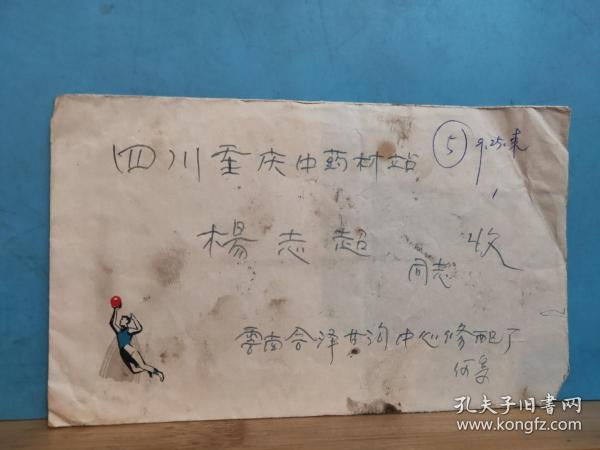 ⑤ 9.25.来
四川重庆中药材站
楊志超 同志 收
雲南会泽甘沟中心修配厂
何
孔夫子旧书网
www.kongfz.com